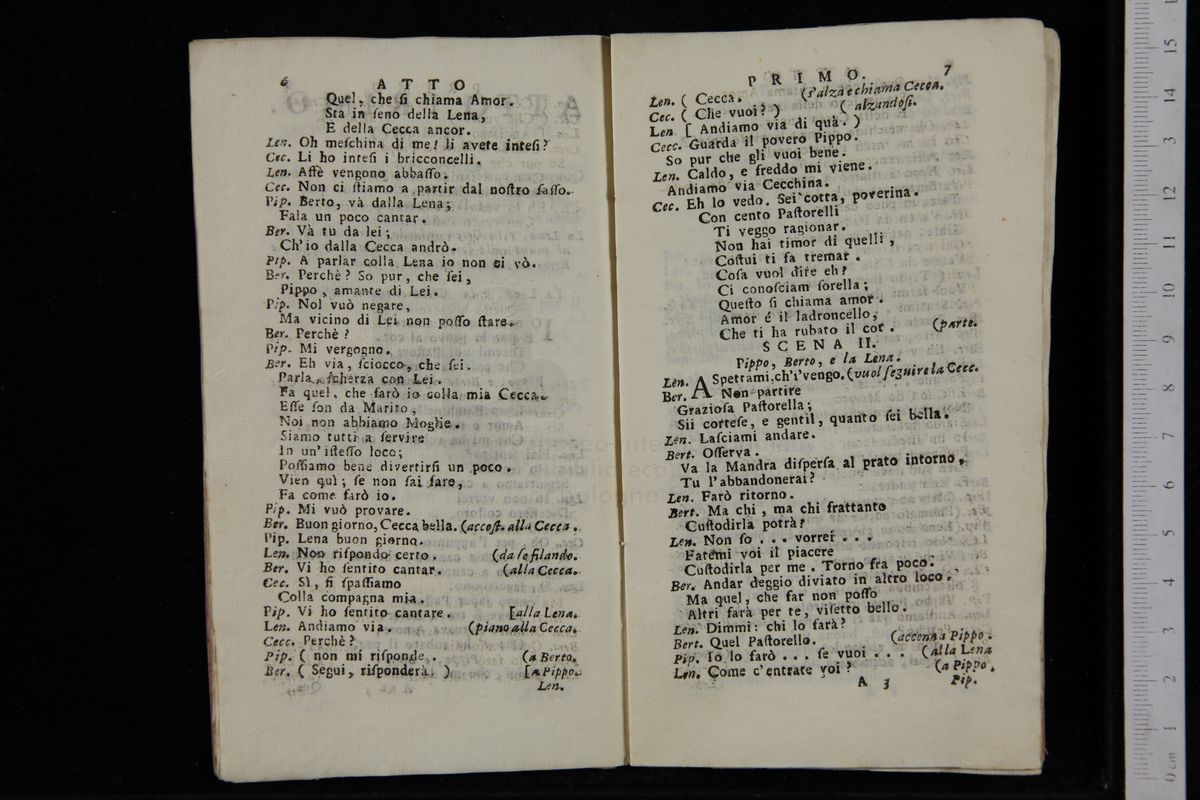 6
ATTO
Quel, che ſi chiama Amor.
Sta in ſeno della Lena,
E della Cecca ancor.
Len. Oh meſchina di me! li avete inteſi?
Cec. Li ho inteſi i bricconcelli.
Len. Affè vengono abbaſſo.
Cec. Non ci ſtiamo a partir dal noſtro ſaſſo.
Pip. Berto, và dalla Lena;
Fala un poco cantar.
Ber. Và tu da lei;
Ch'io dalla Cecca andrò.
Pip. A parlar colla Lena io non ci vò.
Ber. Perchè? So pur, che ſei,
Pippo, amante di Lei.
Pip. Nol vuò negare,
Ma vicino di Lei non poſſo ſtare.
Ber. Perchè?
Pip. Mi vergogno.
Ber. Eh via, ſciocco, che ſei.
Parla, ſcherza con Lei.
Fa quel, che farò io colla mia Cecca.
Eſſe ſon da Marito,
Noi non abbiamo Moglie.
Siamo tutti a ſervire
In un'iſteſſo loco;
Poſſiamo bene divertirſi un poco.
Vien quì; ſe non ſai fare,
Fa come farò io.
Pip. Mi vuò provare.
Ber. Buon giorno, Cecca bella. (accoſt. alla Cecca.
Pip. Lena buon giorno.
Len. Non riſpondo certo. (da ſe filando.
Ber. Vi ho ſentito cantar. (alla Cecca.
Cec. Sì, ſi ſpaſſiamo
Colla compagna mia.
Pip. Vi ho ſentito cantare. [alla Lena.
Len. Andiamo via. (piano alla Cecca.
Cecc. Perchè?
Pip. ( non mi riſponde. (a Berto.
Ber. ( Segui, riſponderà. ) [a Pippo.
Len.
PRIMO.
7
Len. ( Cecca. (s'alza e chiama Cecca.
Cec. ( Che vuoi? ) ( alzandoſi.
Len [ Andiamo via di quà. )
Cecc. Guarda il povero Pippo.
So pur che gli vuoi bene.
Len. Caldo, e freddo mi viene.
Andiamo via Cecchina.
Cec. Eh lo vedo. Sei cotta, poverina.
Con cento Paſtorelli
Ti veggo ragionar.
Non hai timor di quelli,
Coſtui ti fa tremar.
Coſa vuol dire eh?
Ci conoſciam ſorella;
Queſto ſi chiama amor.
Amor é il ladroncello,
Che ti ha rubato il cor. (parte.
SCENA II.
Pippo, Berto, e la Lena.
Len. ASpettami, ch'i'vengo. (vuol ſeguire la Cecc.
Ber. Non partire
Grazioſa Paſtorella;
Sii corteſe, e gentil, quanto ſei bella.
Len. Laſciami andare.
Bert. Oſſerva.
Va la Mandra diſperſa al prato intorno,
Tu l'abbandonerai?
Len. Farò ritorno.
Bert. Ma chi, ma chi frattanto
Cuſtodirla potrà?
Len. Non ſo . . . vorrei . . .
Fatemi voi il piacere
Cuſtodirla per me. Torno fra poco.
Ber. Andar deggio diviato in altro loco.
Ma quel, che far non poſſo
Altri farà per te, viſetto bello.
Len. Dimmi: chi lo farà?
Bert. Quel Paſtorello. (accenna Pippo.
Pip. Io lo farò . . . ſe vuoi . . . (alla Lena
Len. Come c'entrate voi? (a Pippo.
A 3
Pip.